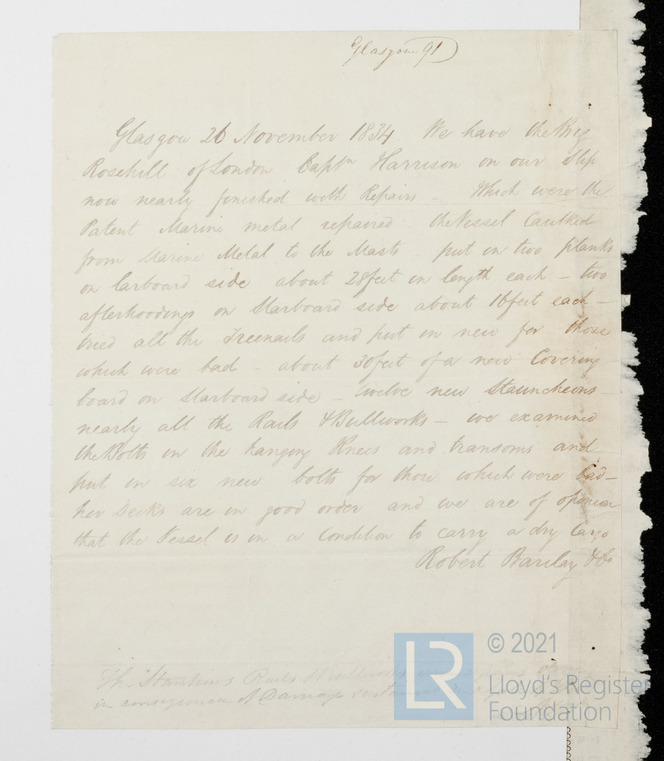 Glasgow 91
Glasgow 26 November 1834 We have the Brig
Rosehill of London Captn Harrison on our Slip
now nearly finished with Repairs - Which were the
Patent Marine metal repaired - the Vessel Caulked
from Marine Metal to the Masts - put in two planks
on larboard side about 28 feet in length each - two
afterhoodings on Starboard side about 16 feet each -
tried all the Treenails and put in new for those
which were bad - about 30 feet of a new Covering
board on Starboard side - twelve new Stauncheons -
nearly all the Rails & Bullworks - we examined
the Bolts in the hanging Knees and transoms and
put in six new bolts for those which were bad -
her Decks are in good order and we are of opinion
that the Vessel is in a Condition to carry a dry Cargo
Robert Barclay & Co
The Stantions Rails & Bullworks
in consequence of Damage
LR
© 2021
Lloyd's Register
Foundation